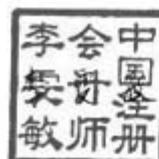 中国注册
会计师
李雯敏